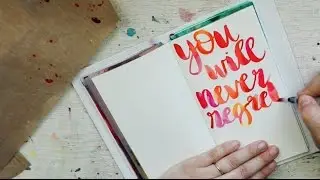 you
will
never
regret